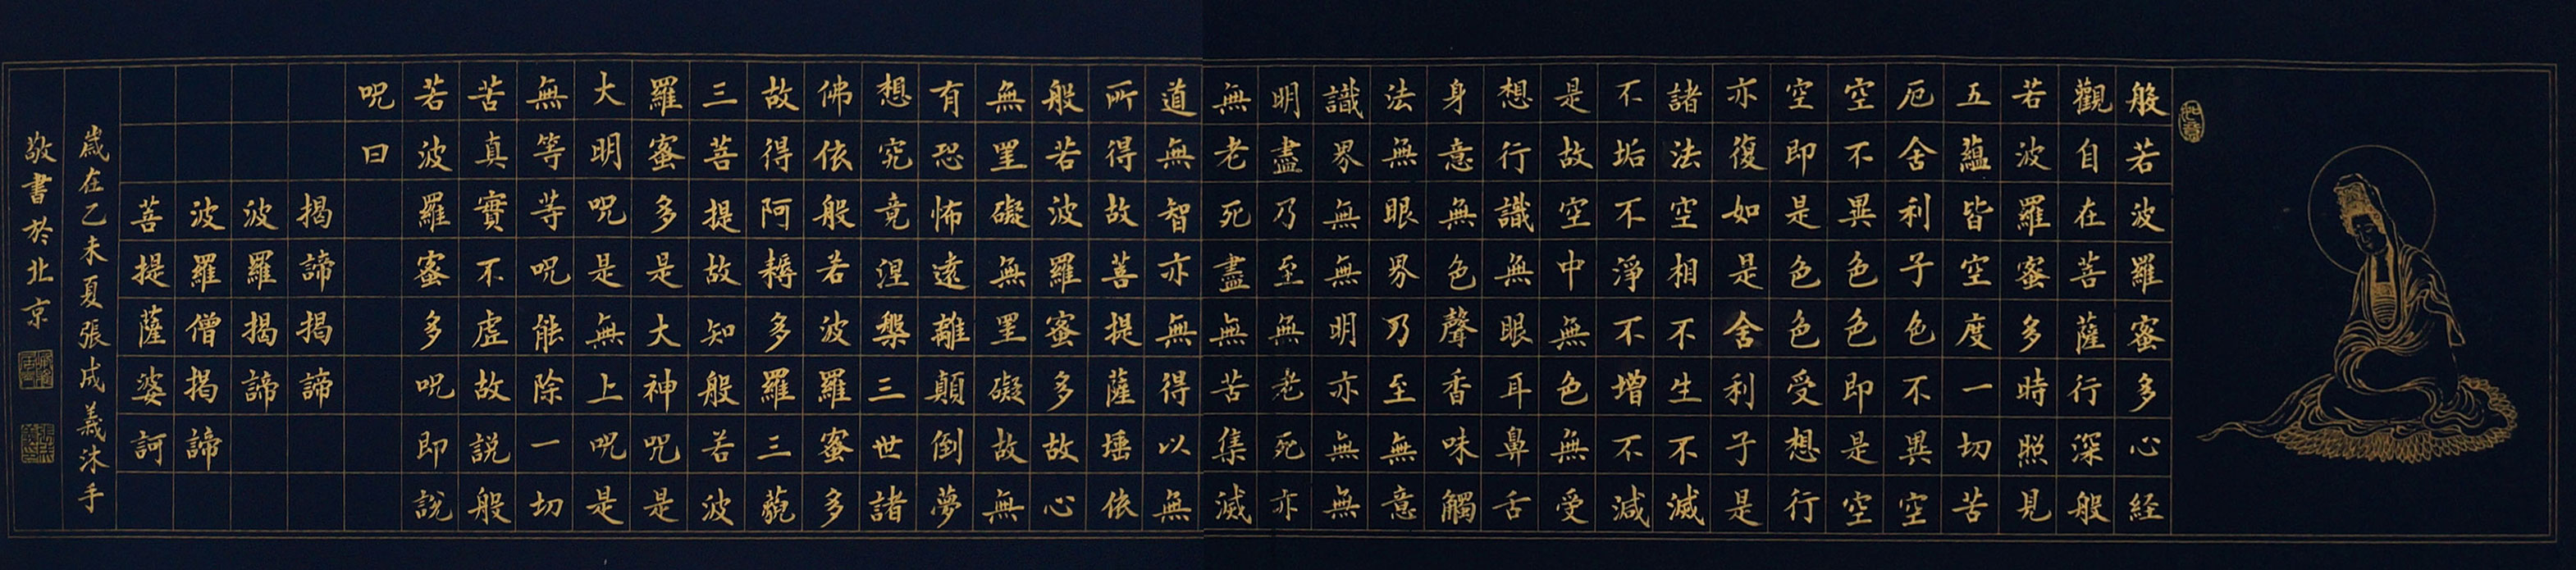 般若波羅蜜多心経
觀自在菩薩行深般
若波羅蜜多時照見
五蘊皆空度一切苦
厄舍利子色不異空
空不異色色即是空
空即是色色受想行
亦復如是舍利子是
諸法空相不生不滅
不垢不淨不增不減
是故空中無色無受
想行識無眼耳鼻舌
身意無色聲香味觸
法無眼界乃至無意
識界無無明亦無無
明盡乃至無老死亦
無老死盡無苦集滅
道無智亦無得以無
所得故菩提薩埵依
般若波羅蜜多故心
無罣礙無罣礙故無
有恐怖遠離顛倒夢
想究竟涅槃三世諸
佛依般若波羅蜜多
故得阿耨多羅三藐
三菩提故知般若波
羅蜜多是大神呪是
大明呪是無上呪是
無等等呪能除一切
苦真實不虛故說般
若波羅蜜多呪即說
呪曰
揭諦揭諦
波羅揭諦
波羅僧揭諦
菩提薩婆訶
歲在乙未夏張成義沐手
敬書於北京